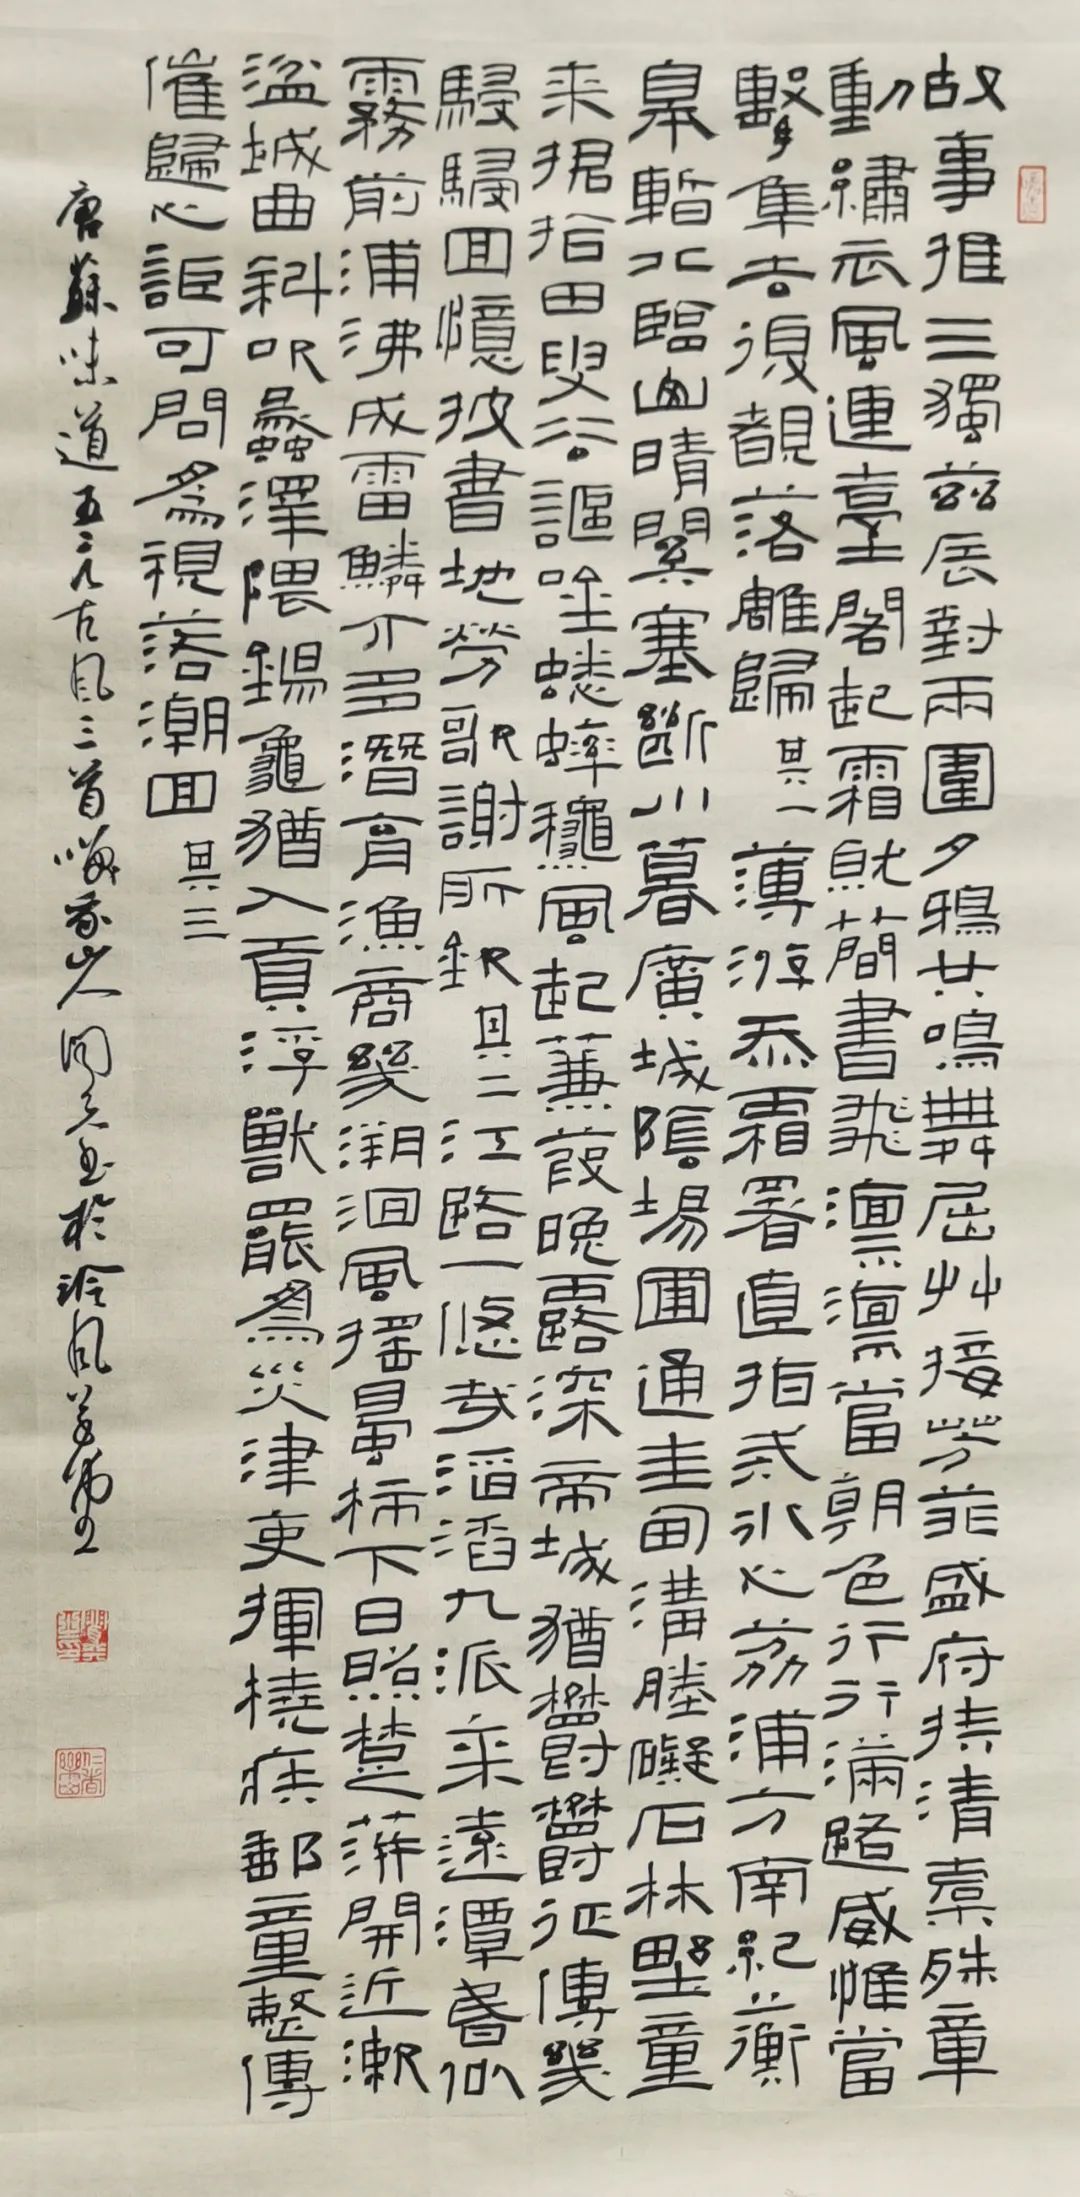 故事推三獨茲辰對兩圍夕鴉共鳴舞屈艸接芳菲盛府持清橐殊章
動繡衣風連臺閣起霜就簡書飛凛凛當朝色行行滿路威惟當
擊隼去復覩落雕歸其一薄游忝霜署直指戒冰心荔浦方南紀蘅
皋暫北臨山晴關塞斷川暮廣城陰場圃通圭甸溝塍礙石林野童
来捃拾田叟去謳吟蟋蟀龝風起蒹葭晚露深帝城猶鬱鬱征傳幾
駸駸回憶披書地勞歌謝所欽其二江路一悠哉滔滔九派来遠潭昏似
霧前浦沸成雷鱗介多潛育漁商幾溯洄風摇蜀柹下日照楚萍開近漱
湓城曲斜吹蠡澤隈錫龜猶入貢浮獸罷為災津吏揮橈疾郵童整傳
催歸心詎可問為視落潮回其三
唐蘇味道五言古風三首山人書於風草堂